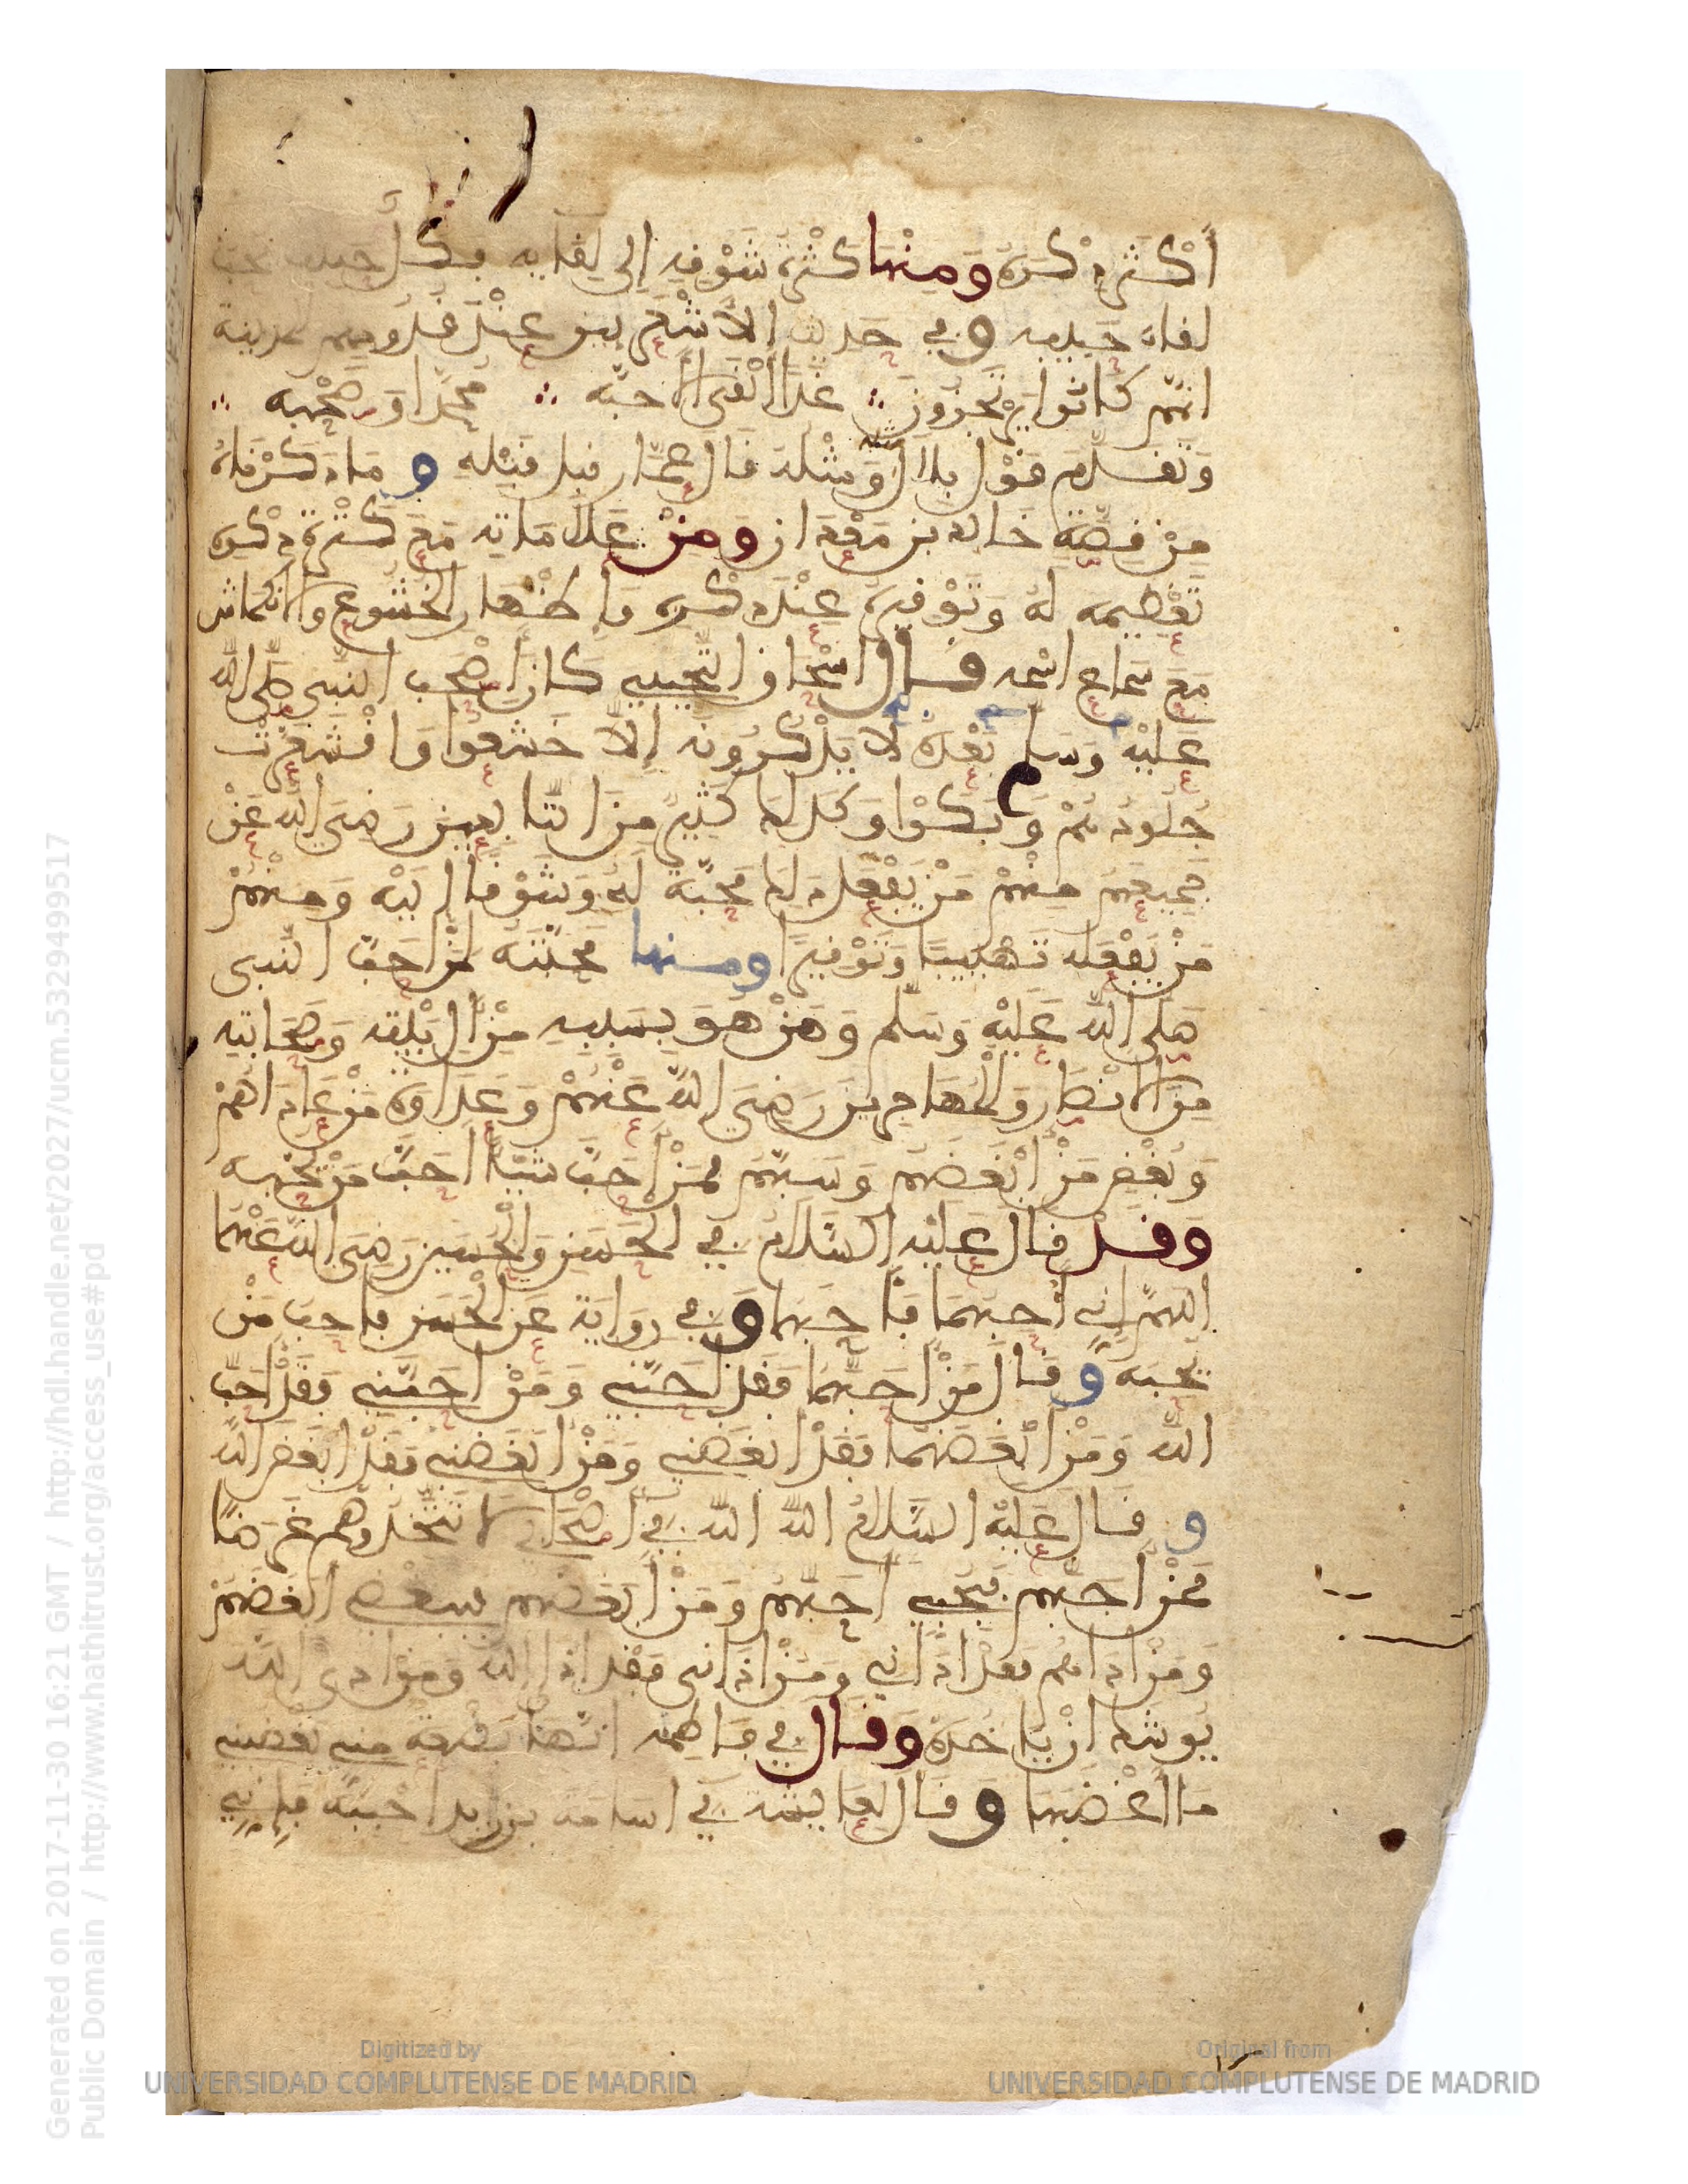 أكثر ذكره ومنها كثرة شوقه إلى لقايه فكل حبيب يحب
لقاء حبيبه وفي حديث الأشعريين عند قدومهم المدينة
انهم كانوا يرتجزون غدا نلقى الاحبه محمدا وصحبه
وتقدم قول بلال ومثله قال عمار قبل قتله وما ذكرناه
من قصة خالد بن معدان ومن علاماته مع كثرة ذكره
تعظيمه له وتوقيره عند ذكره وإظهار الخشوع والانكماش
مع سماع اسمه قال اسحاق التجيبي كان أصحب النبي صلى الله
عليه وسلم بعده لا يذكرونه إلا خشعوا واقشعرت
جلودهم وبكوا وكذلك كثير من التابعين رضي الله عن
جميعهم منهم من يفعل ذلك محبة له وشوقا إليه ومنهم
من يفعله تهيبا وتوقيرا ومنها محبته لمن أحب النبي
صلى الله عليه وسلم ومن هو بسببه من آل بيته وصحابته
من الانصار والمهاجرين رضي الله عنهم وعداوة من عاداهم
وبغض من أبغضهم وسبهم فمن أحب شيئا احب من يحبه
وقد قال عليه السلام في الحسن والحسين رضي الله عنهما
اللهم إني أحبهما فأحبهما وفي رواية عن الحسن فأحب من
يحبه وقال من أحبهما فقد أحبني ومن احبني فقد أحب
الله ومن أبغضهما فقد ابغضني ومن أبغضني فقد ابغض الله
وقال عليه السلام الله الله في أصحابي لا تتخذوهم غرضا
فمن أحبهم فبحبي أحبهم ومن أبغضهم فببغضي ابغضهم
ومن اذاهم فقد اذاني ومن اذاني فقد اذا الله ومن اذى الله
يوشك ان ياخذه وقال في فاطمة انها بضعة مني يغضبني
ما أغضبها وقال لعايشة في اسامة بن زيد احبيه فإني
Generated on 2017-11-30 16:21 GMT / http://hdl.handle.net/2027/ucm.5329499517
Public Domain / http://www.hathitrust.org/access_use#pd
Digitized by
UNIVERSIDAD COMPLUTENSE DE MADRID
Original from
UNIVERSIDAD COMPLUTENSE DE MADRID